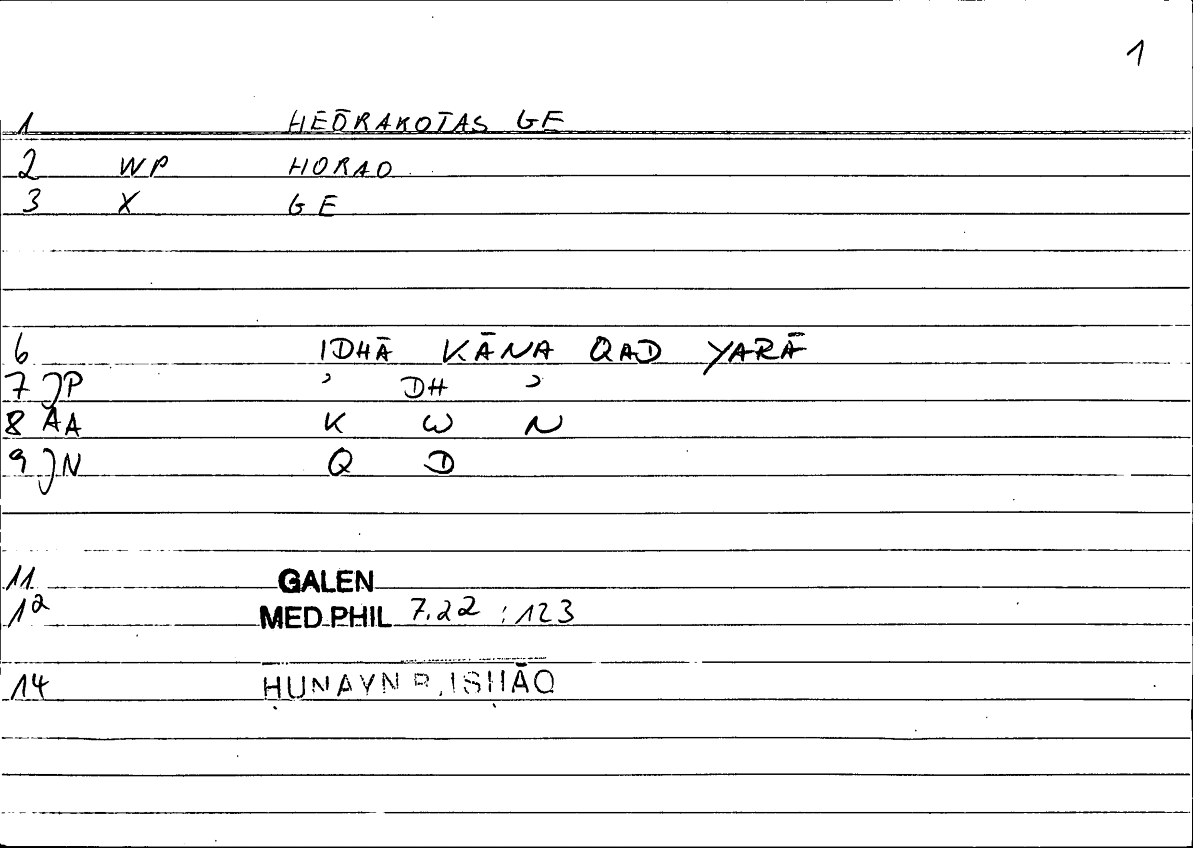 1
1 HEŌRAKOTAS GE
2 WP HORAO
3 X GE
6 IDHĀ KĀNA QAD YARĀ
7 JP ʾ DH ʾ
8 AA K W N
9 JN Q D
11 GALEN
12 MED.PHIL 7.22 : 123
14 ḤUNAYN B. ISḤĀQ